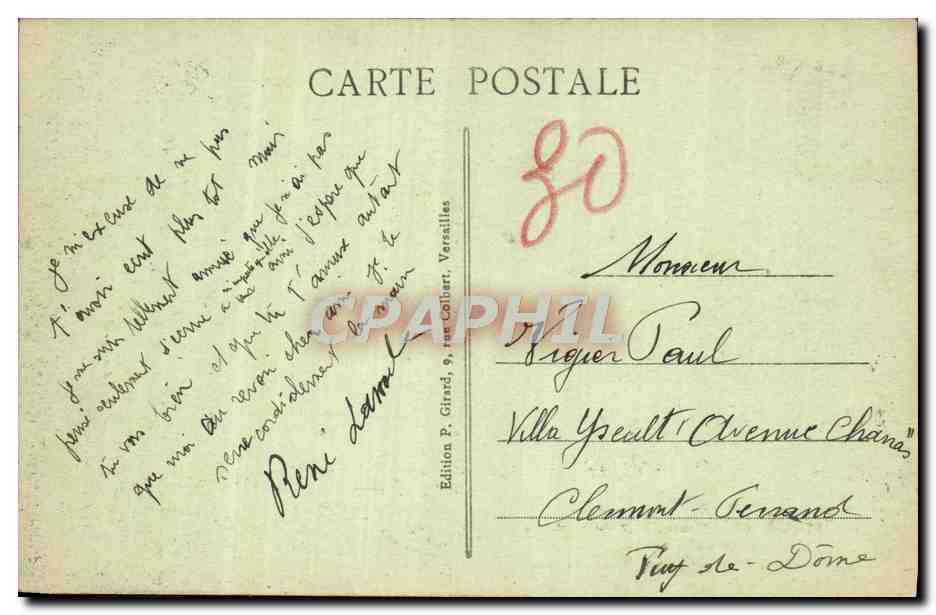 CARTE POSTALE
80
je m'excuse de ne pas
t'avoir ecrit plus tot mais
je me suis tellement amusé que je n'ai pas
pensé seulement d'ecrire a n'importe qui
tu vas bien et que tu t'amuse autant
que moi au revoir cher ami je te
serre cordialement la main
René
Edition P. Girard, 9, rue Colbert, Versailles
Monsieur
Vigier Paul
Villa Yseult "Avenue Chanas"
Clermont-Ferrand
Puy-de-Dôme
CPAPHIL